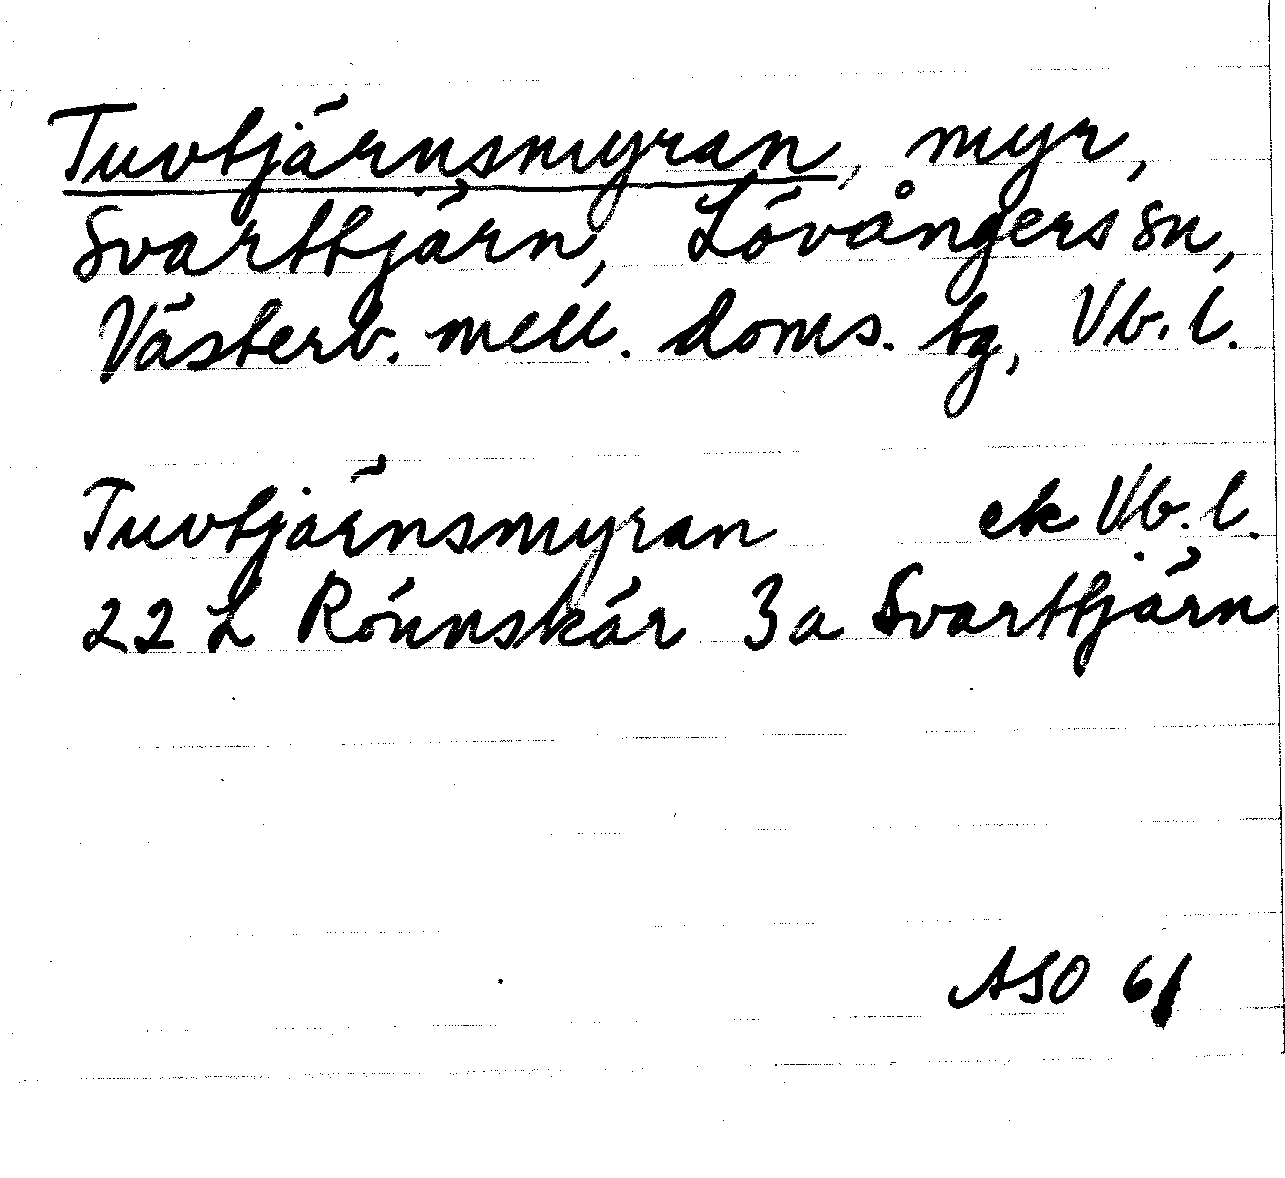 Tuvtjärnsmyran, myr,
Svarttjärn, Lövångers sn,
Västerb. mell. doms. tg, Vb. l.
Tuvtjärnsmyran ek Vb. l.
22 L Rönnskär 3a Svarttjärn
ASO 61